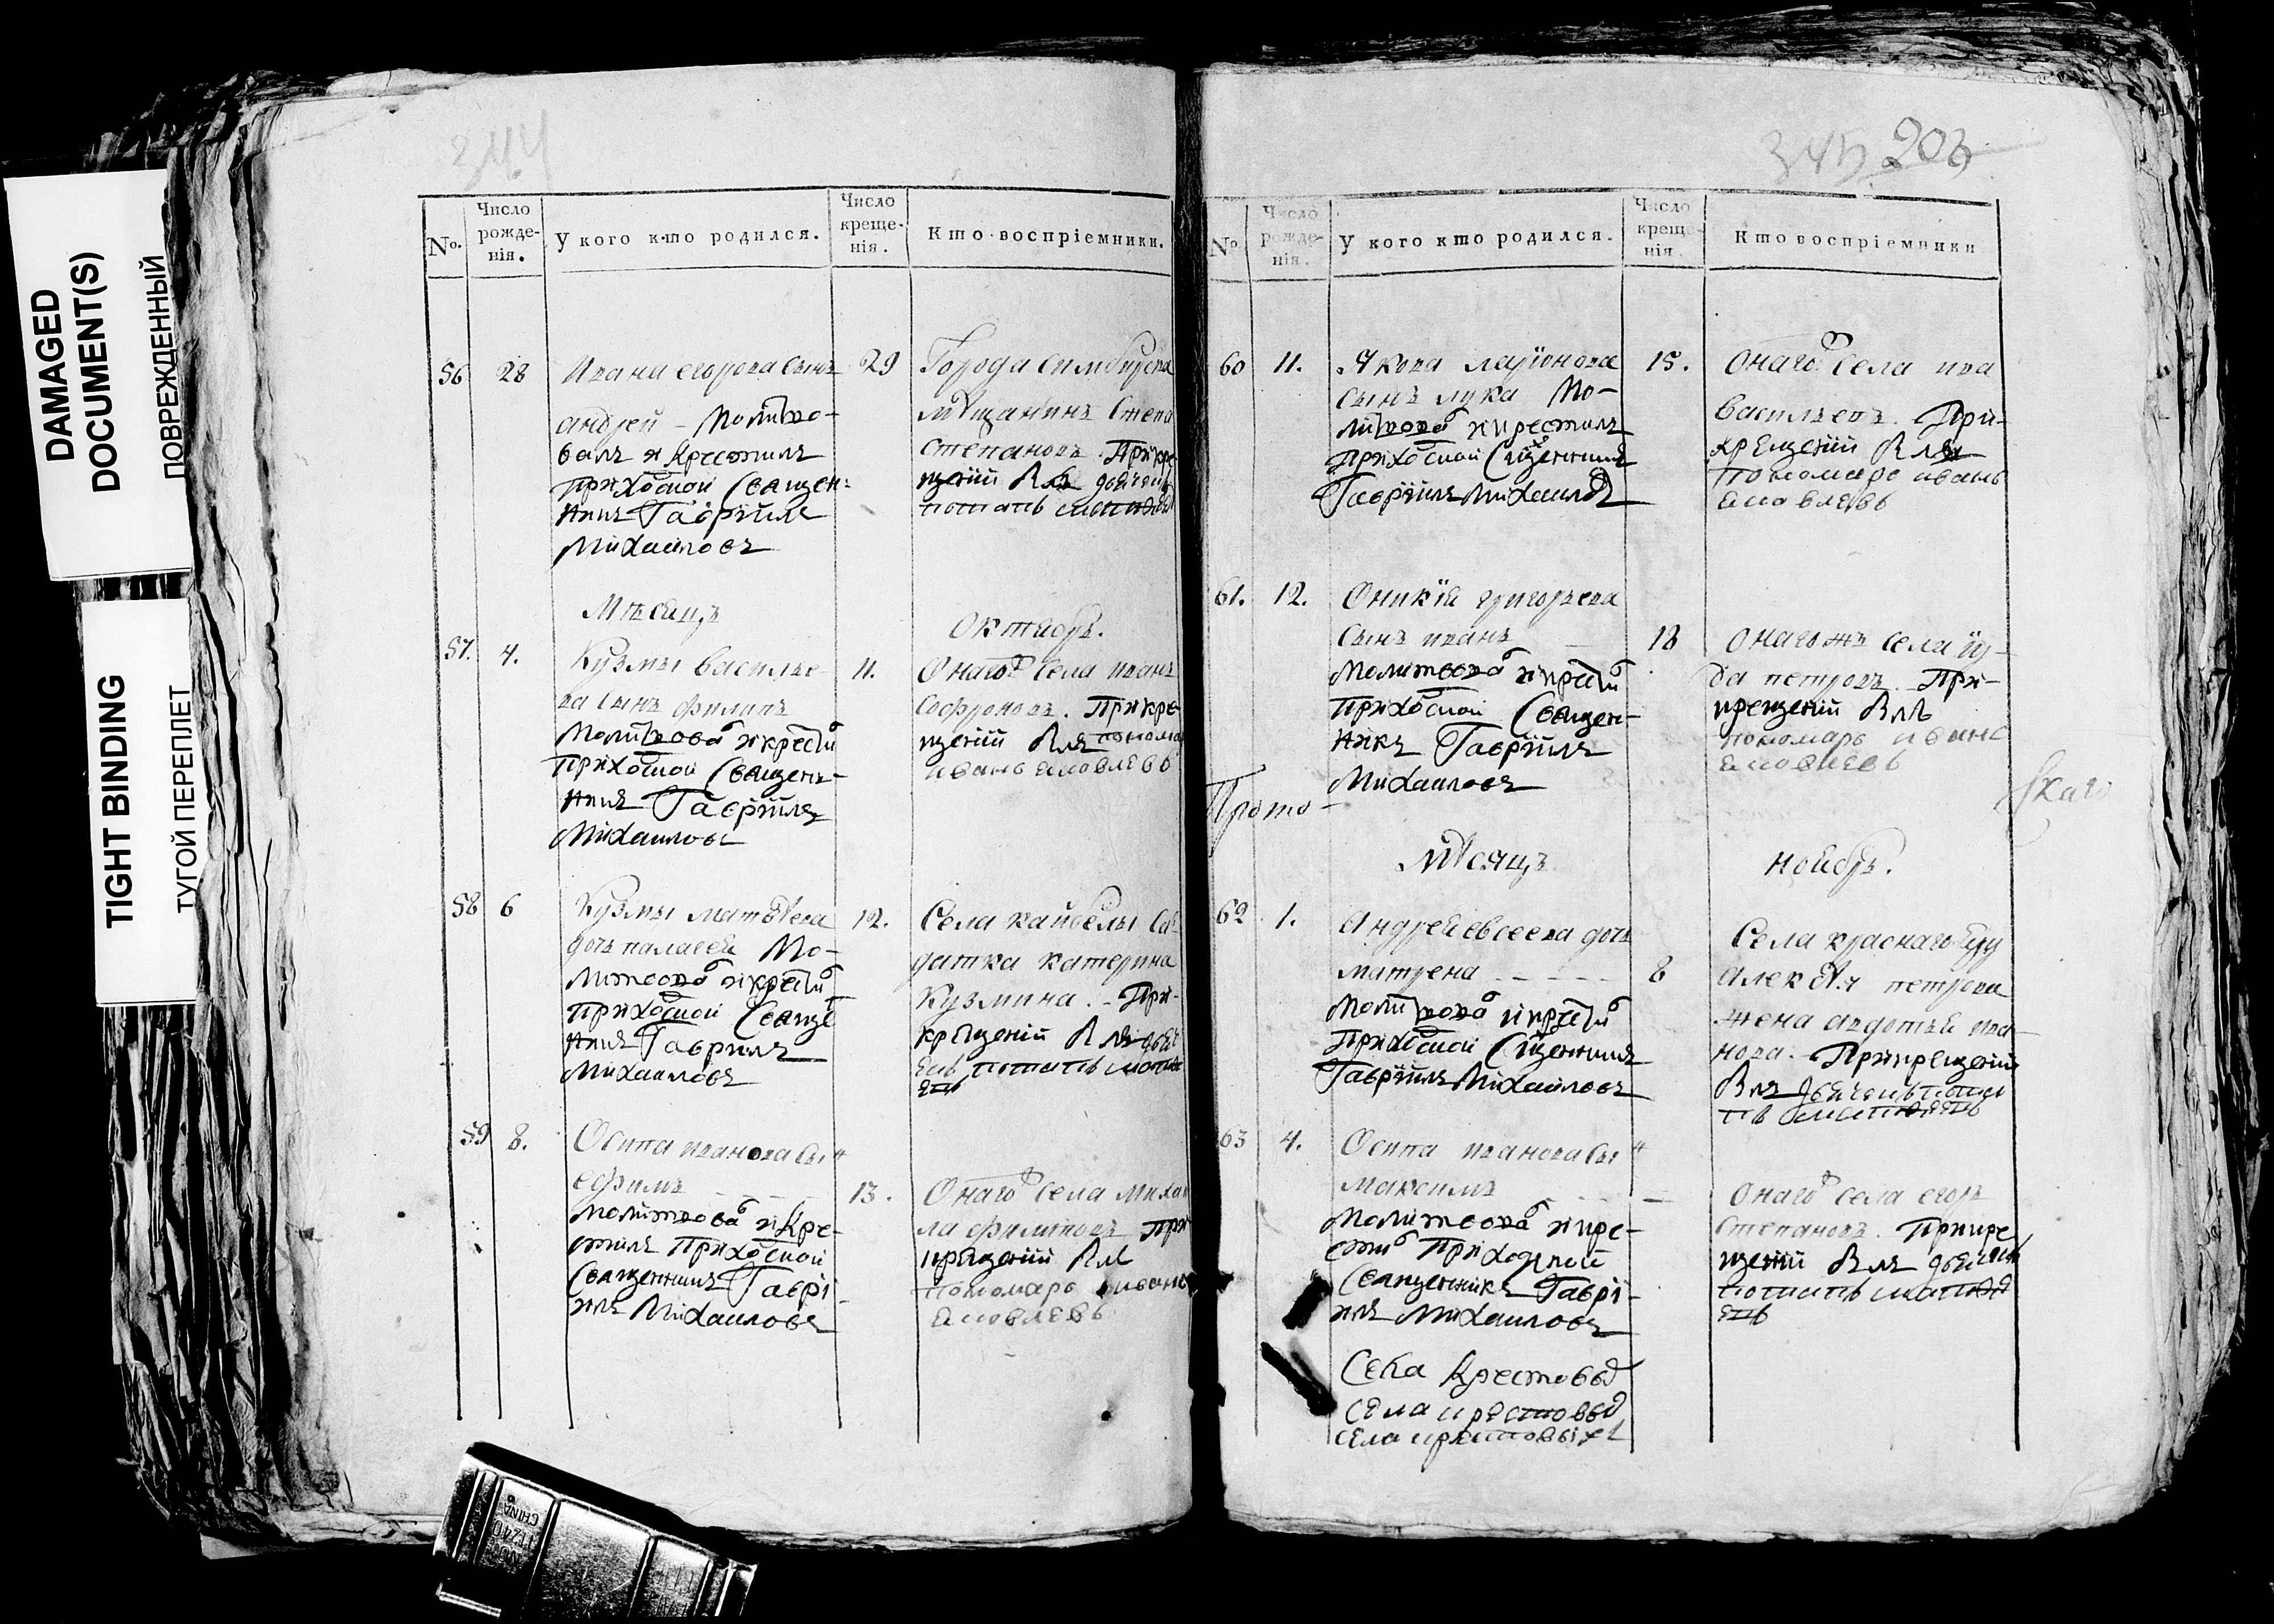 DAMAGED
DOCUMENT(S)
ПОВРЕЖДЕННЫЙ
TIGHT BINDING
ТУГОЙ ПЕРЕПЛЕТ
344
№.
Число
рожде-
нія.
У кого кто родился.
Число
креще-
нія.
Кто воспріемники.
56
28
Ивана егорова сынъ
андрей – Молитво-
валъ и Крестилъ
Приходской Священ-
никъ Гавріилъ
Михайловъ
29
Города Симбирска
мѣщанинъ Степа
степановъ. При кре
щеніи былъ дьячекъ
Мѣсяцъ
Октябрь.
57.
4.
Кузмы василье-
ва сынъ филипъ
Молитвова и крести
Приходской Священ-
никъ Гавріилъ
Михаиловъ
11.
Онаго села иванъ
Софроновъ. При кре
щеніи былъ понома
иванъ Яковлевъ
58
6
Кузмы матвѣева
дочь паласея Мо-
литвова и крести
Приходской Свяще
никъ Гавриилъ
Михаиловъ
12.
Села кайбелы сол
датка катерина
Кузмина. – При
крещеніи былъ дья
59
8.
Осипа иванова сын
ефимъ
Молитвова и Кре-
стилъ Приходской
Священникъ Гаврі-
илъ Михаиловъ
13.
Онаго села михаи
ла филиповъ При
крещеніи былъ
пономарь иванъ
Яковлевъ
345 203
№
Число
рожде-
нія.
У кого кто родился.
Число
креще-
нія.
Кто воспріемники
60
11.
Якова ларіонова
сынъ лука Мо-
литвова и крестилъ
Приходской Священникъ
Гавріилъ Михаилов
15.
Онаго села ива
васильевъ. При-
крещеніи былъ
Пономарь иванъ
Яковлевъ
61.
12.
Оникія григорьева
сынъ иванъ
Молитвова и крести
Приходской Священ-
никъ Гавріилъ
Михаиловъ
18
Онагожъ села іу-
да петровъ. При-
крещеніи былъ
пономарь иванъ
Яковлевъ
Прото-
Мѣсяцъ
ноябрь.
62
1.
Андрея евсеева дочь
матрена
Молитвова и крести
Приходской Священникъ
Гавріилъ Михаиловъ
8
Села краснаго яру
алексѣя петрова
жена авдотья ива-
нова. – При крещеніи
былъ дьячекъ
63
4.
Осипа иванова сын
максимъ
Молитвова и кре-
сти Приходской
Священникъ Гаврі-
илъ Михаиловъ
Онаго села егоръ
степановъ. При кре
щеніи былъ дьячекъ
Села Крестовы
села крестовы
села крестовыхъ